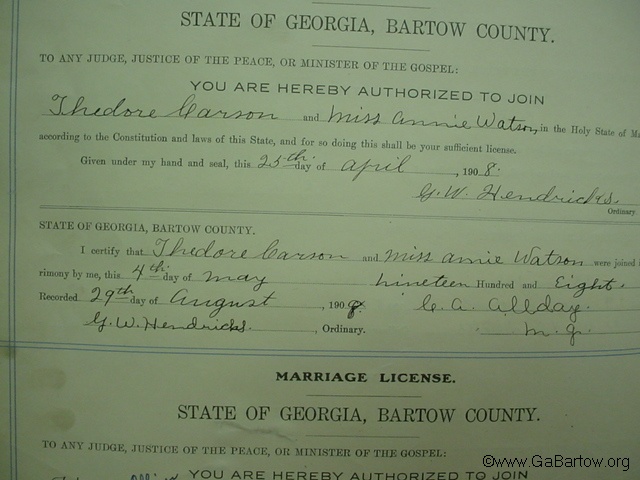 STATE OF GEORGIA, BARTOW COUNTY.
TO ANY JUDGE, JUSTICE OF THE PEACE, OR MINISTER OF THE GOSPEL:
YOU ARE HEREBY AUTHORIZED TO JOIN
Thedore Carson and Miss Annie Watson, in the Holy State of
according to the Constitution and laws of this State, and for so doing this shall be your sufficient license.
Given under my hand and seal, this 25th day of April, 1908.
G. W. Hendricks.
Ordinary
STATE OF GEORGIA, BARTOW COUNTY.
I certify that Thedore Carson and Miss Annie Watson were joined
rimony by me, this 4th day of May Nineteen Hundred and Eight.
Recorded 29th day of August, 1908. C. A. Allday.
G. W. Hendricks., Ordinary. M. G.
MARRIAGE LICENSE.
STATE OF GEORGIA, BARTOW COUNTY.
TO ANY JUDGE, JUSTICE OF THE PEACE, OR MINISTER OF THE GOSPEL:
YOU ARE HEREBY AUTHORIZED TO JOIN
©www.GaBartow.org